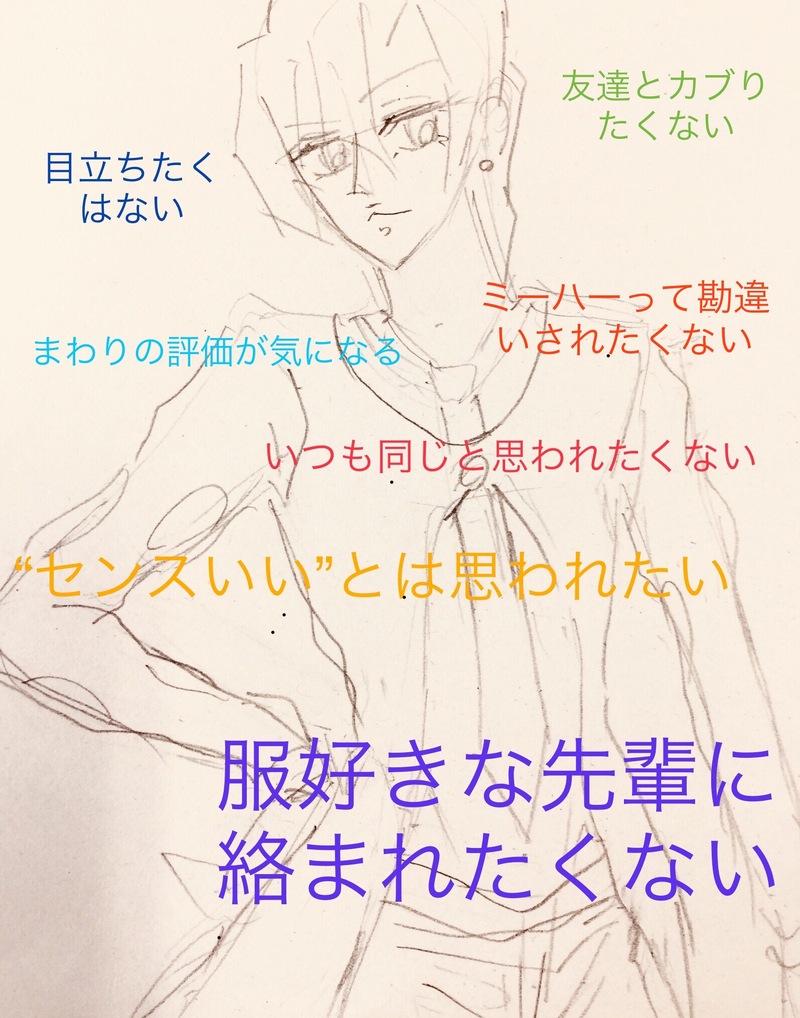 友達とカブり
たくない
目立ちたく
はない
ミーハーって勘違
いされたくない
まわりの評価が気になる
いつも同じと思われたくない
“センスいい”とは思われたい
服好きな先輩に
絡まれたくない